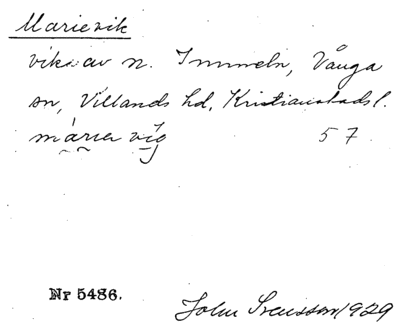 Marievik
vik av n. Immeln, Vånga
sn, Villands hd, Kristianstads l.
märıa vig 57
Nr 5486.
John Svensson 1929